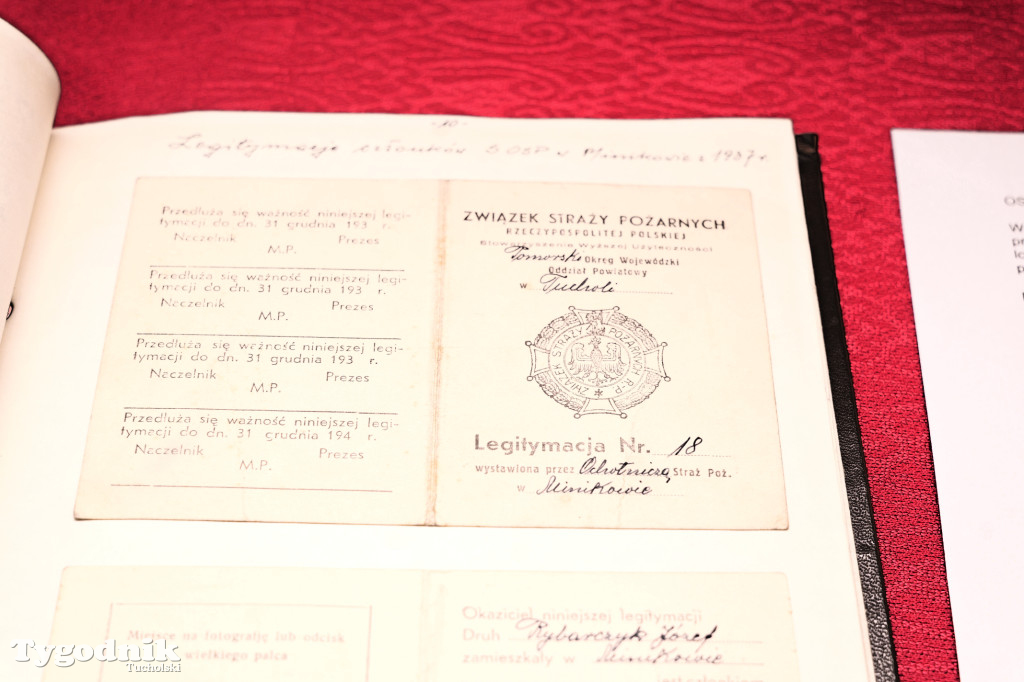 -10-
Legitymacje członków SOSP w Minikowie z 1937 r.
Przedłuża się ważność niniejszej legi-
tymacji do dn. 31 grudnia 193 r.
Naczelnik Prezes
M.P.
Przedłuża się ważność niniejszej legi-
tymacji do dn. 31 grudnia 193 r.
Naczelnik Prezes
M.P.
Przedłuża się ważność niniejszej legi-
tymacji do dn. 31 grudnia 193 r.
Naczelnik Prezes
M.P.
Przedłuża się ważność niniejszej legi-
tymacji do dn. 31 grudnia 194 r.
Naczelnik Prezes
M.P.
ZWIĄZEK STRAŻY POŻARNYCH
RZECZYPOSPOLITEJ POLSKIEJ
Stowarzyszenie Wyższej Użyteczności
Pomorski Okręg Wojewódzki
Oddział Powiatowy
w Tucholi
ZWIĄZEK STRAŻY POŻARNYCH R.P.
Legitymacja Nr. 18
wystawiona przez Ochotniczą Straż Poż.
w Minikowie
Miejsce na fotografję lub odcisk
wielkiego palca
Okaziciel niniejszej legitymacji
Druh Rybarczyk Józef
zamieszkały w Minikowie
jest członkiem
OS
W
Tygodnik
Tucholski